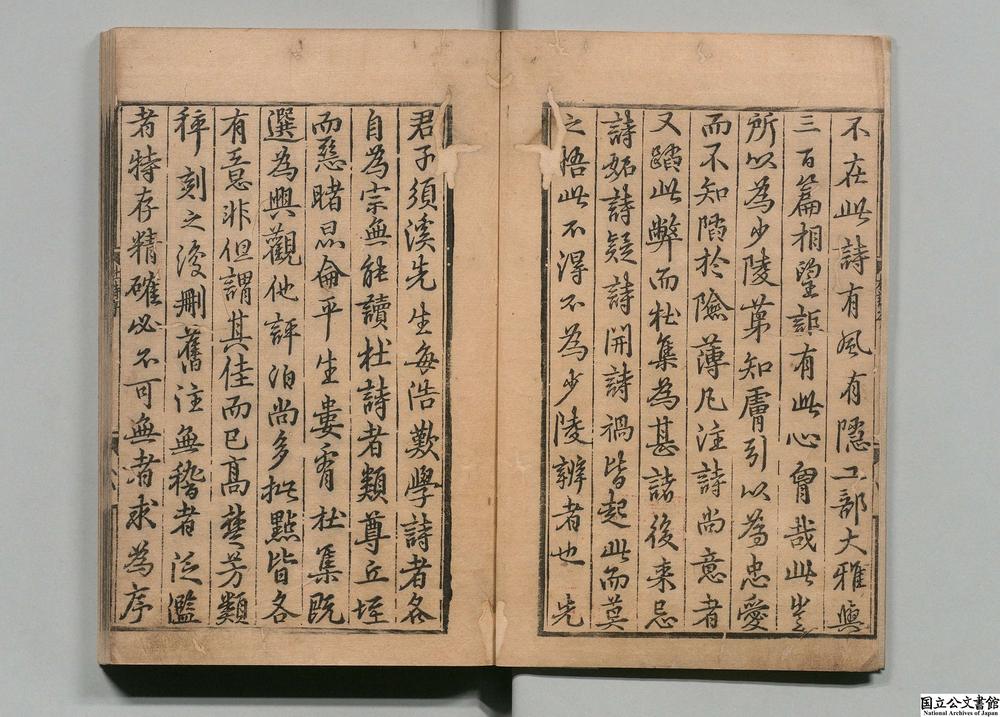 不在此詩有風有隱工部大雅與
三百篇相望詎有此心胷哉此豈
所以為少陵苐知膚引以為忠愛
而不知陷於險薄凡注詩尚意者
又蹈此弊而杜集為甚諸後来忌
詩妬詩疑詩開詩禍皆起此而莫
之悟此不得不為少陵辨者也 先
君子須溪先生每浩歎學詩者各
自為宗無能讀杜詩者類尊丘垤
而惡睹崑侖平生婁看杜集既
選為興觀他評泊尚多批點皆各
有意非但謂其佳而已髙楚芳類
稡刻之後刪舊注無稽者泛濫
者特存精確必不可無者求為序
国立公文書館
National Archives of Japan